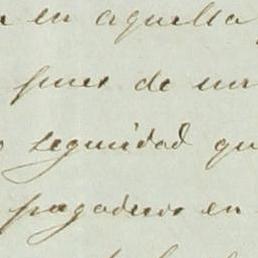 en aquella
pues de un
seguridad qu
pagadero en